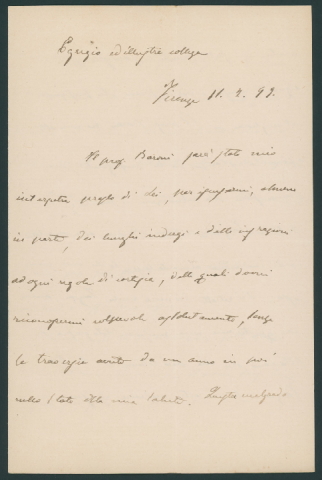 Egregio ed illustre collega
Firenze 11. 2. 99.
Il prof. Baroni sarà stato mio
interprete presso di Lei, per scusarmi, almeno
in parte, dei lunghi indugi e delle infrazioni
ad ogni regola di cortesia, delle quali dovrei
riconoscermi colpevole assolutamente, senza
le trascorse da un anno in poi
nello stato della mia salute. Questa